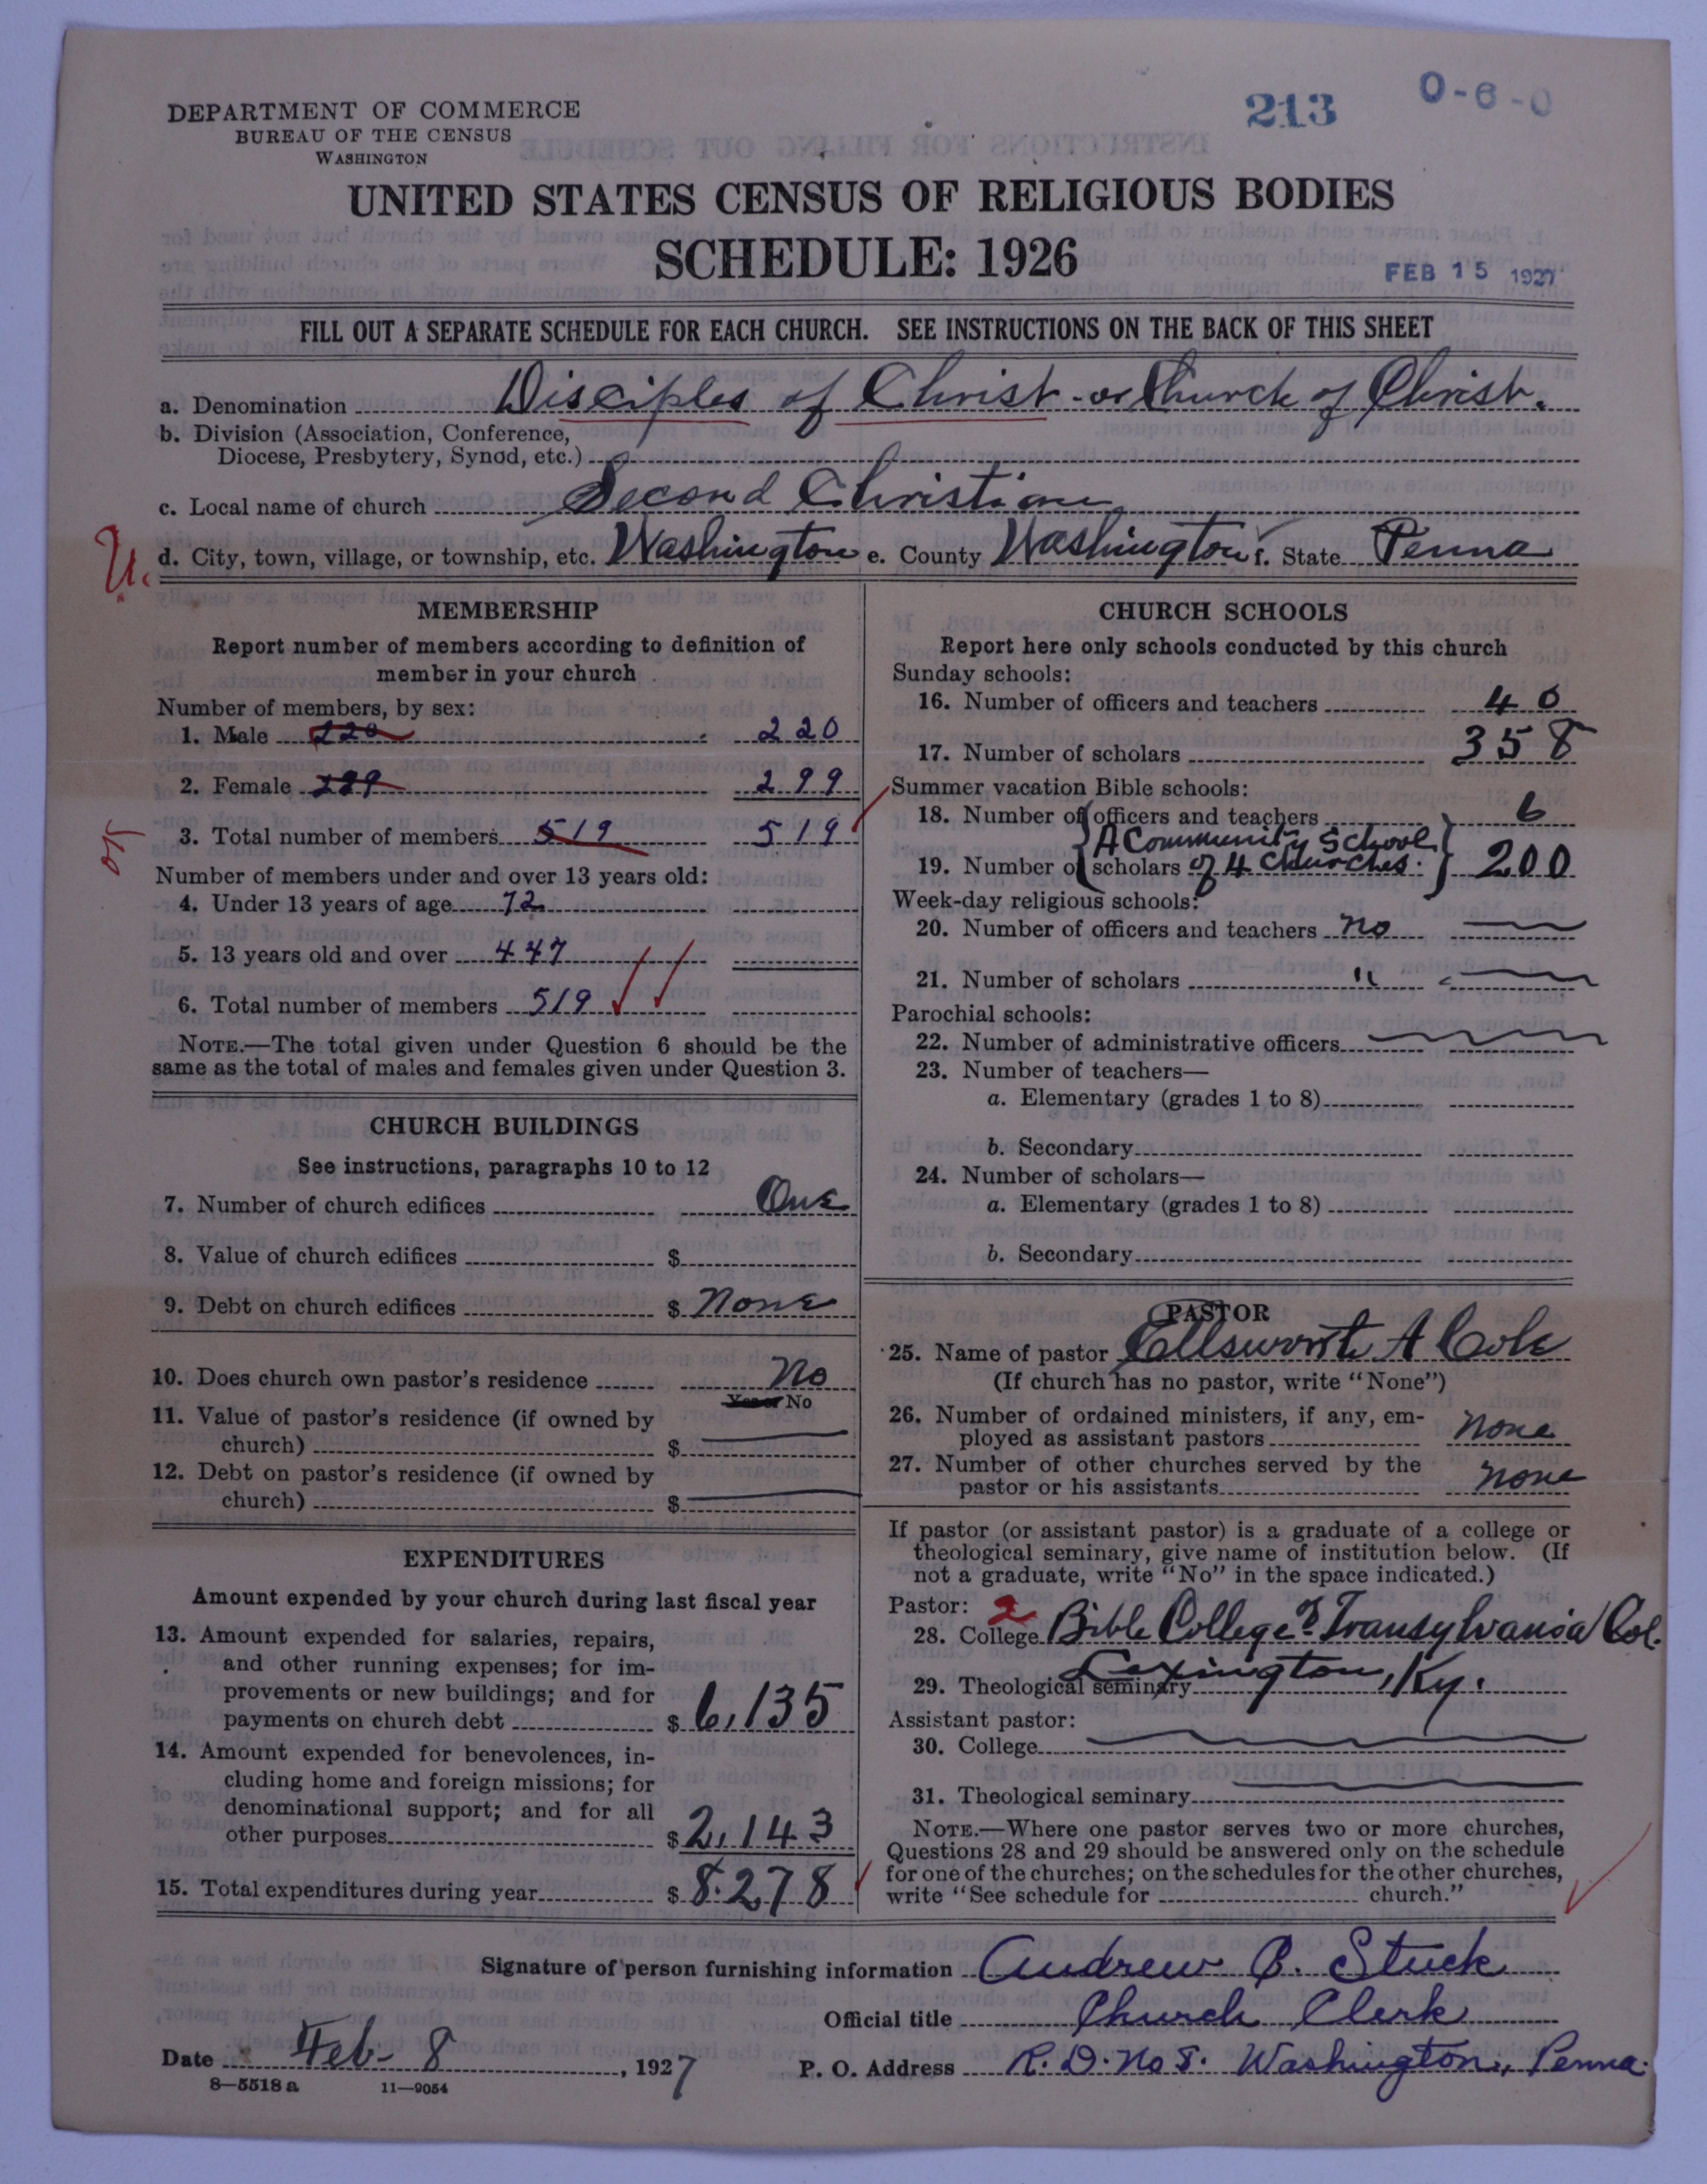 213
0-6-0
DEPARTMENT OF COMMERCE
BUREAU OF THE CENSUS
WASHINGTON
UNITED STATES CENSUS OF RELIGIOUS BODIES
SCHEDULE: 1926
FEB 15 1927
FILL OUT A SEPARATE SCHEDULE FOR EACH CHURCH. SEE INSTRUCTIONS ON THE BACK OF THIS SHEET
a. Denomination Disciples of Christ - or Church of Christ.
b. Division (Association, Conference,
Diocese, Presbytery, Synod, etc.)
c. Local name of church Second Christian
U. d. City, town, village, or township, etc. Washington e. County Washington f. State Penna
MEMBERSHIP
Report number of members according to definition of
member in your church
Number of members, by sex:
1. Male 220 220
2. Female 299 299
3. Total number of members 519 519
Number of members under and over 13 years old:
4. Under 13 years of age 72
5. 13 years old and over 447
6. Total number of members 519
NOTE.—The total given under Question 6 should be the
same as the total of males and females given under Question 3.
CHURCH BUILDINGS
See instructions, paragraphs 10 to 12
7. Number of church edifices One
8. Value of church edifices $
9. Debt on church edifices $ None
10. Does church own pastor's residence No
Yes or No
11. Value of pastor's residence (if owned by
church) $
12. Debt on pastor's residence (if owned by
church) $
EXPENDITURES
Amount expended by your church during last fiscal year
13. Amount expended for salaries, repairs,
and other running expenses; for im-
provements or new buildings; and for
payments on church debt $ 6,135
14. Amount expended for benevolences, in-
cluding home and foreign missions; for
denominational support; and for all
other purposes $ 2,143
15. Total expenditures during year $ 8.278
CHURCH SCHOOLS
Report here only schools conducted by this church
Sunday schools:
16. Number of officers and teachers 40
17. Number of scholars 358
Summer vacation Bible schools:
18. Number of officers and teachers 6
A Community School
19. Number of scholars of 4 Churches. 200
Week-day religious schools:
20. Number of officers and teachers no
21. Number of scholars "
Parochial schools:
22. Number of administrative officers
23. Number of teachers—
a. Elementary (grades 1 to 8)
b. Secondary
24. Number of scholars—
a. Elementary (grades 1 to 8)
b. Secondary
PASTOR
25. Name of pastor Ellsworth A Cole
(If church has no pastor, write "None")
26. Number of ordained ministers, if any, em-
ployed as assistant pastors none
27. Number of other churches served by the
pastor or his assistants none
If pastor (or assistant pastor) is a graduate of a college or
theological seminary, give name of institution below. (If
not a graduate, write "No" in the space indicated.)
Pastor: 2
28. College Bible College & Transylvania Col.
29. Theological seminary Lexington, Ky.
Assistant pastor:
30. College
31. Theological seminary
NOTE.—Where one pastor serves two or more churches,
Questions 28 and 29 should be answered only on the schedule
for one of the churches; on the schedules for the other churches,
write "See schedule for church."
Signature of person furnishing information Andrew B. Stuck
Official title Church Clerk
Date Feb- 8, 1927 P. O. Address R. D. No 8. Washington, Penna.
8—5518 a 11—9054